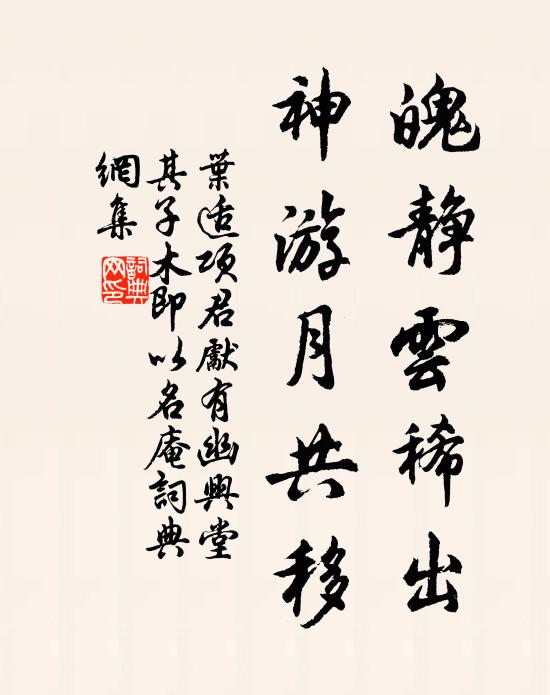 魄静雲稀出
神游月共移
葉适項君獻有幽興堂
其子木即以名庵詞典
網集
詞典
網印